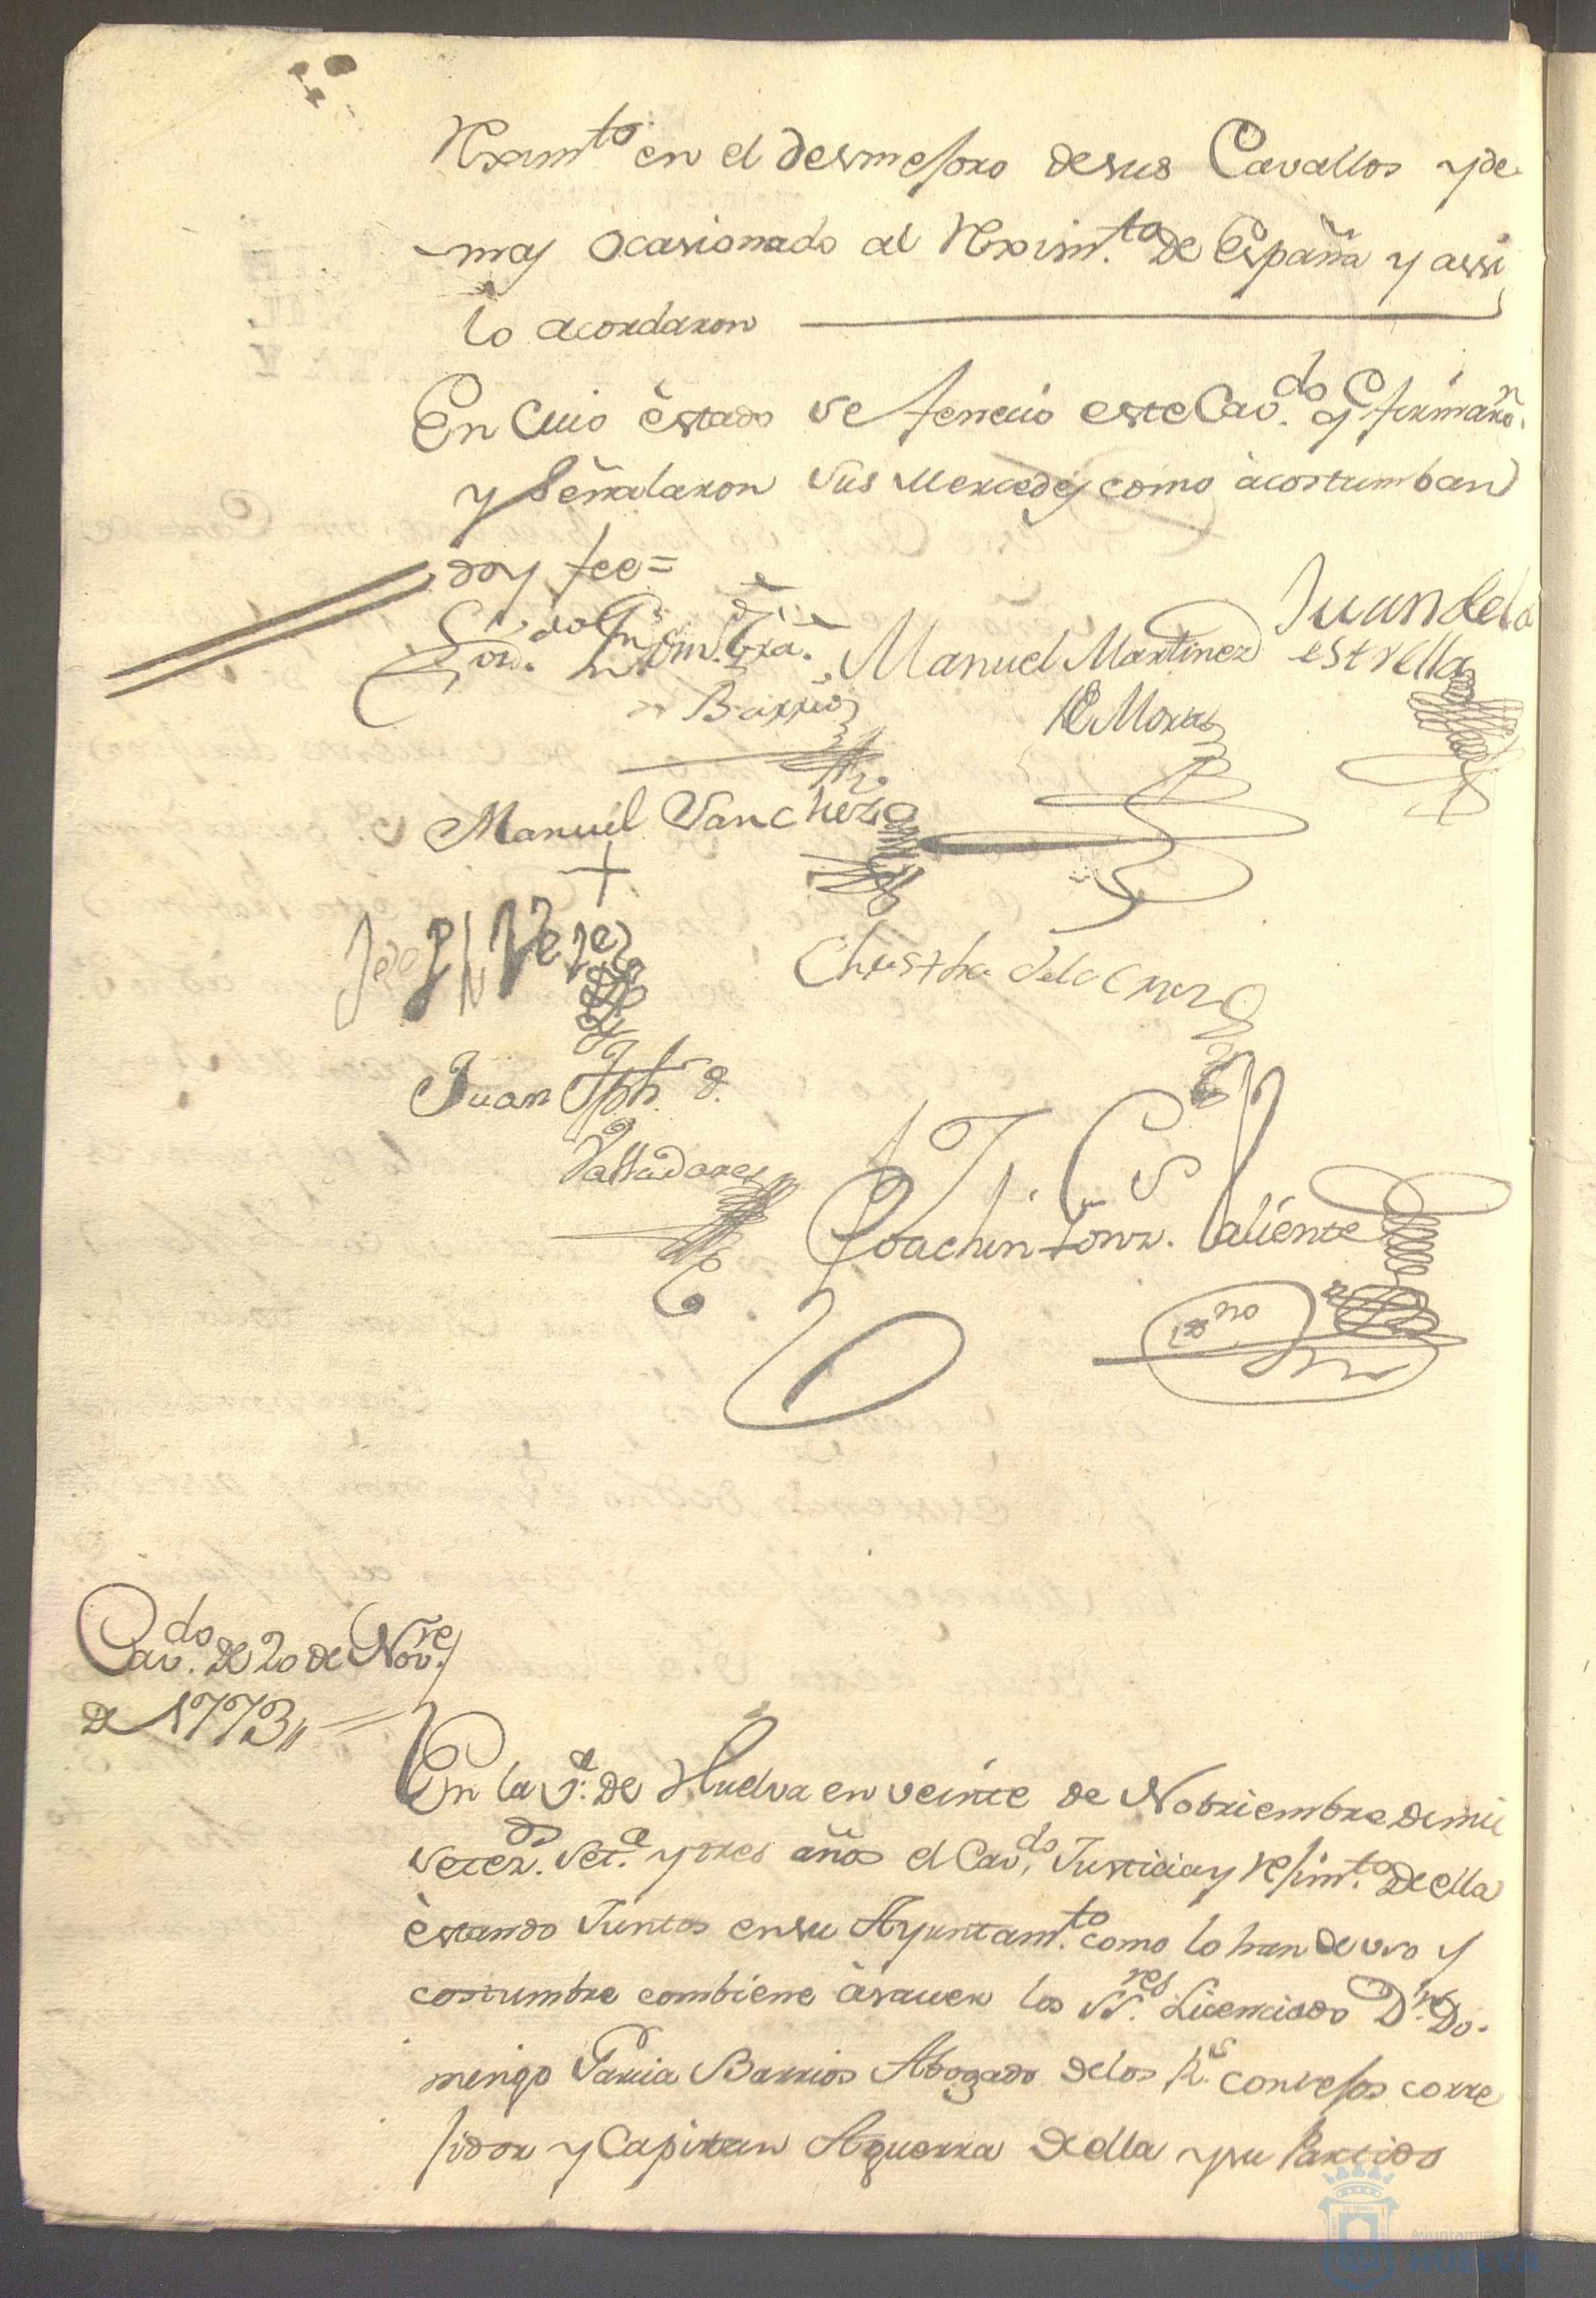 Reximto en el desmesoro desus Cavallos y de
mas ocasionado al Reximto. de España y assi
lo acordaron
En Cuio estado se fenecio este Cavdo. q firmaron.
y Señalaron sus Mercedes como acostumban
doy fee=
Lizdo. Dn Dom. Gra.
Barrios
Manuel Martinez
Mora
Juan de la
estrella
Manuel Sanchez
+
Joseph Perez
Christoba de la Cruz
Juan Jph d.
Valladares
Joachin Gonz. Valiente
ssno
Cavdo. de 20 de Novre.
de 1773,,=
En la Va. de Huelva en veinte de Nobriembre de mil
setezos. Seta. y tres años el Cavdo. Justicia y resimto. de ella
estando Juntos en su Ayuntamto. como lo han de uso y
costumbre combiene à saver los SSres. Licenciado Dn. Do-
mingo Garcia Barrios Abogado de los Rs. consesos corre
sidor y Capitan Aguerra de ella y su Partido
Ayuntamiento de
HUELVA